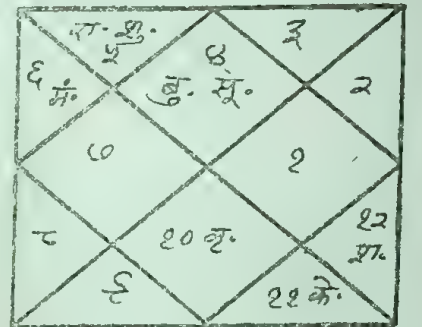 रा. शु.
५
४
बु. सू.
३
६
मं.
२
७
१
८
१० बृ.
१२
श.
९
११ के.